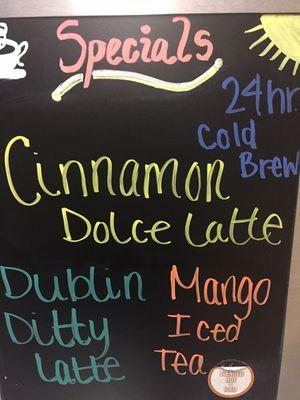 Specials
24hr
Cold
Brew
Cinnamon
Dolce Latte
Dublin
Ditty
Latte
Mango
Iced
Tea